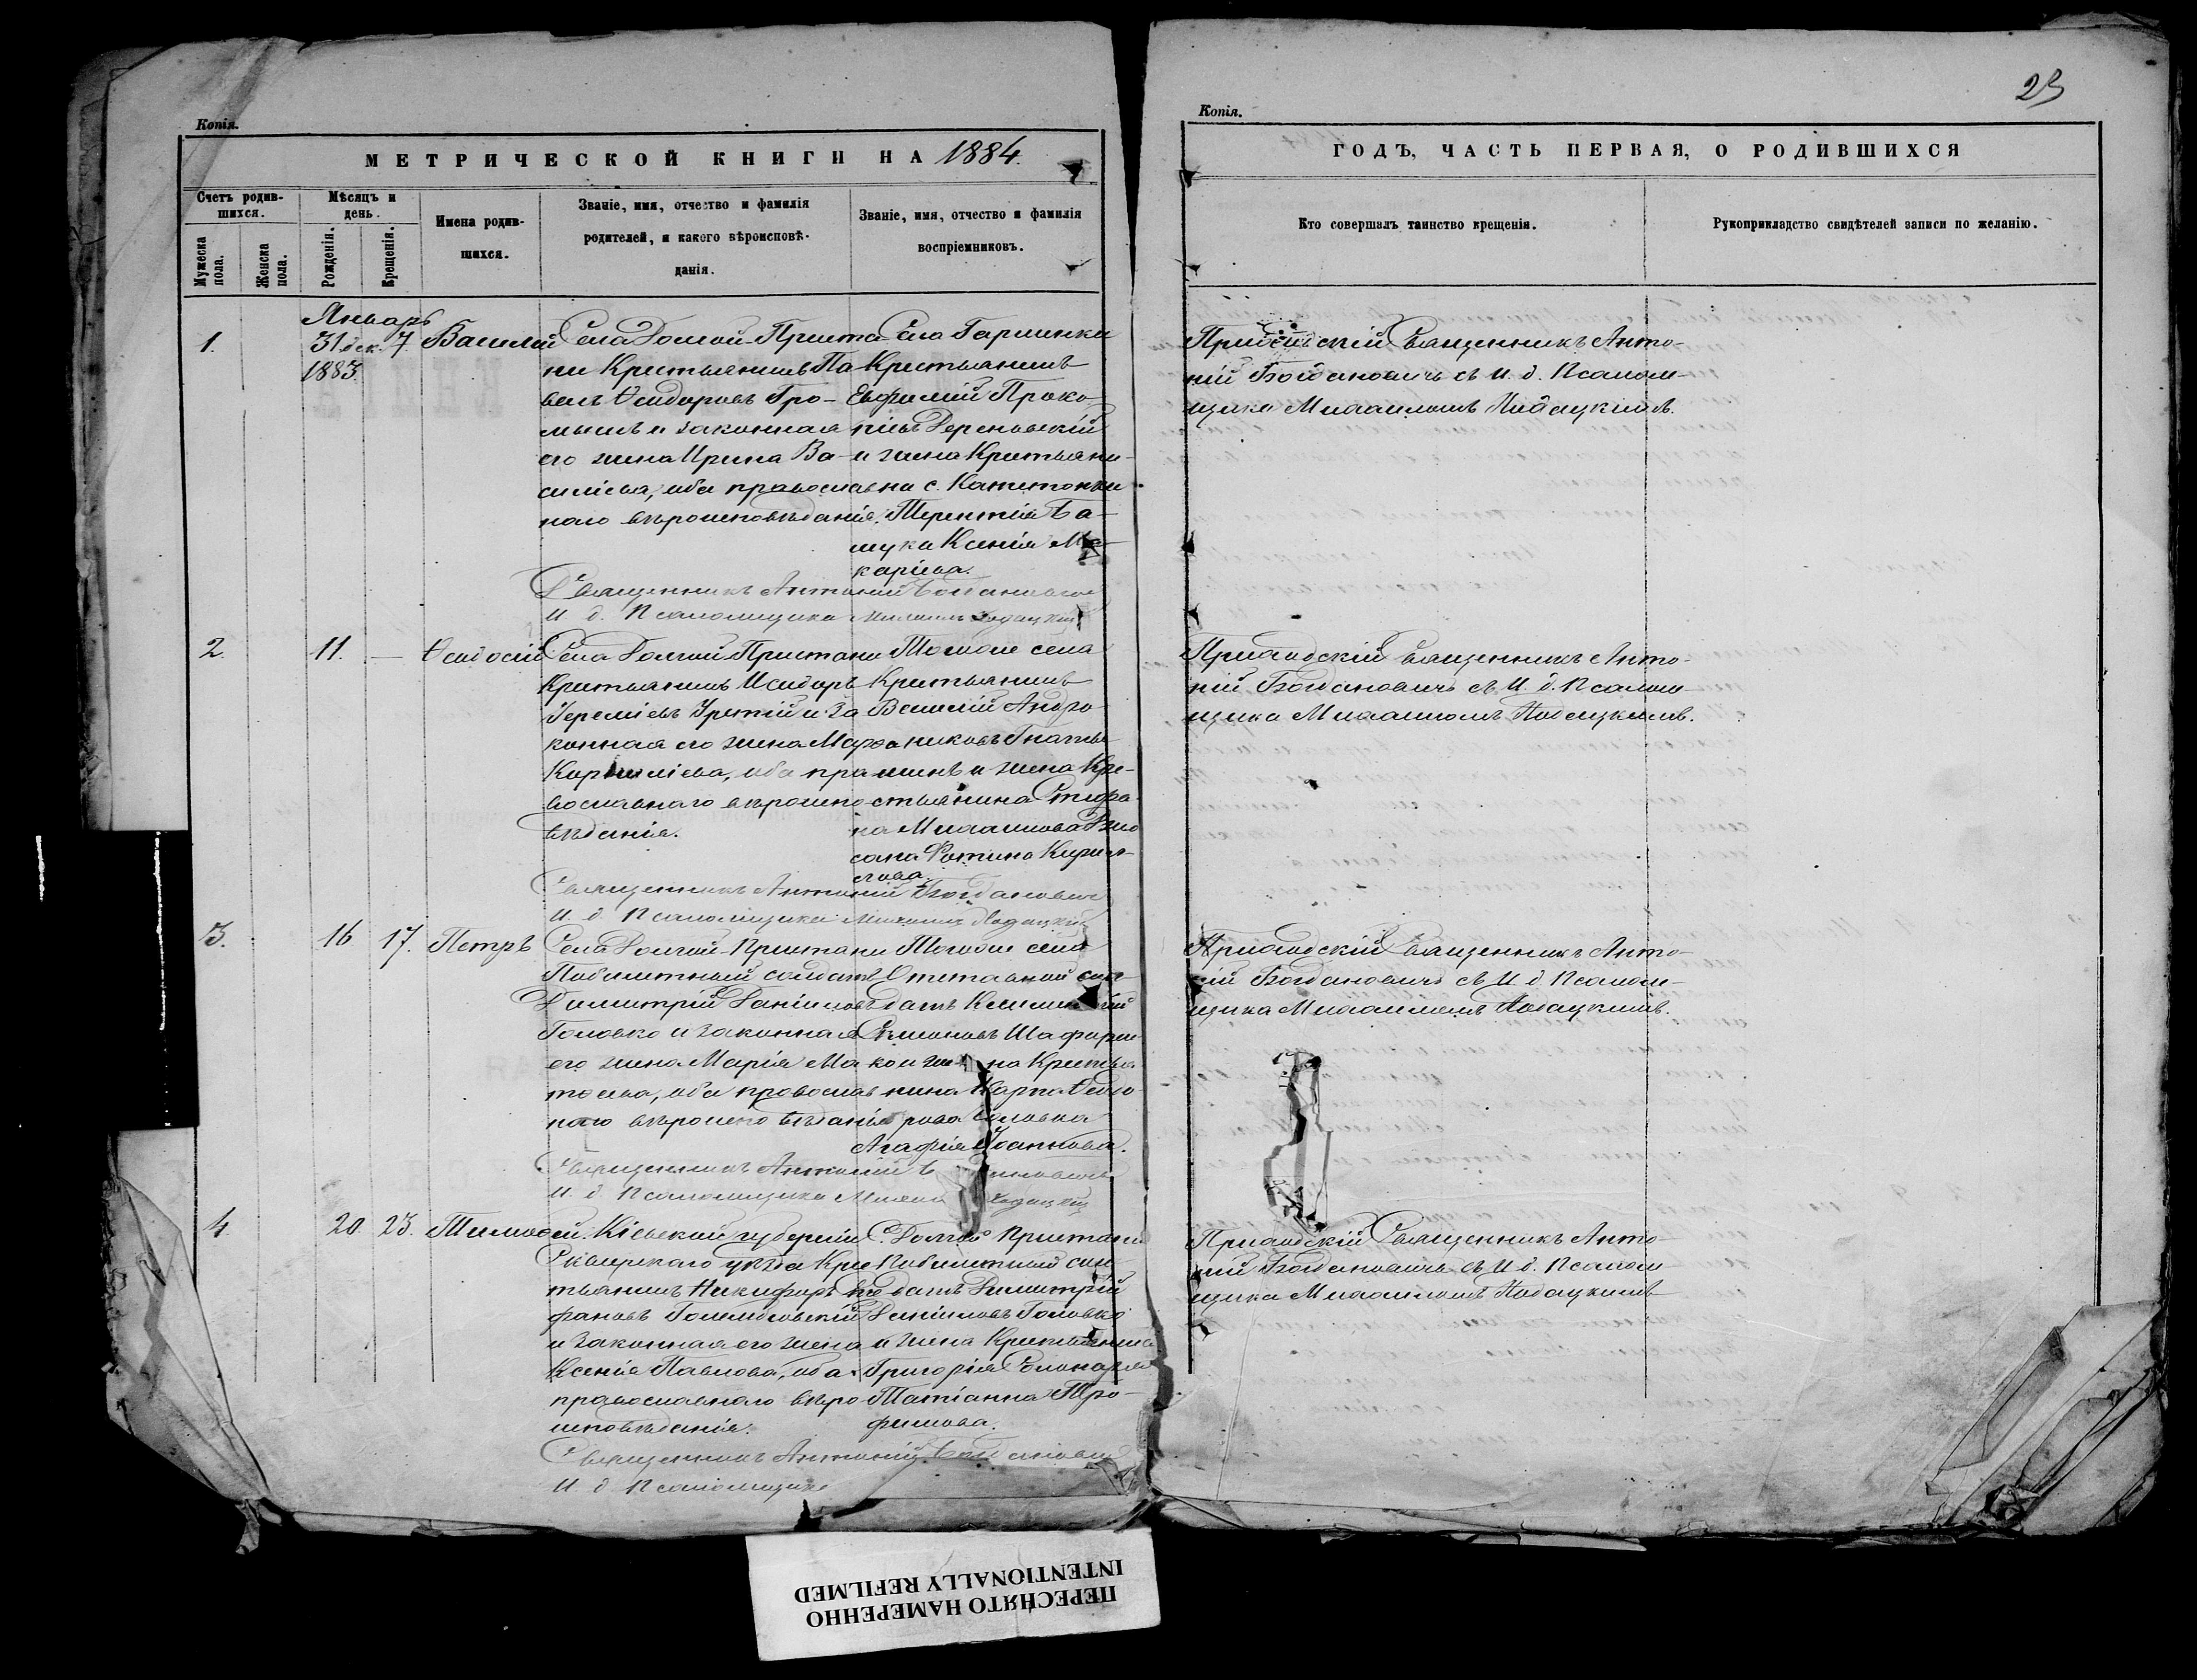 Копія.
МЕТРИЧЕСКОЙ КНИГИ НА 1884.
Счетъ родив-
шихся.
Мужеска
пола.
Женска
пола.
Мѣсяцъ и
день.
Рожденія.
Крещенія.
Имена родив-
шихся.
Званіе, имя, отчество и фамилія
родителей, и какого вѣроисповѣ-
данія.
Званіе, имя, отчество и фамилія
воспріемниковъ.
Январь
1.
31 дек.
1883.
7.
Василій
Села Долгой-Приста
ни Крестьянинъ Па
велъ Ѳеодоровъ Гро-
мышъ и законная
его жена Ирина Ва-
силіева, оба православ
наго вѣроисповѣданія.
Села
Крестьянинъ
Евфимій Проко-
піевъ
и жена Крестьяни-
на с.
Терентія Ба-
шука Ксенія Ма-
каріева.
Священникъ Антоній Богдановичъ
И. д. Псаломщика Михаилъ
2.
11.
—
Ѳеодосій
Села Долгой Пристани
Крестьянинъ Исидоръ
Іереміевъ и За
конная его жена Марѳа
Корниліева, оба пра
вославнаго вѣроиспо
вѣданія.
Того же села
Крестьянинъ
Василій Андро
никовъ
и жена Кре-
стьянина Стефа
на Михаилова
Фотина Кирил-
лова.
Священникъ Антоній Богдановичъ
И. д. Псаломщика Михаилъ
3.
16
17.
Петръ
Села Долгой-Пристани
Побилетный солдатъ
Димитрій Даніиловъ
Головко и законная
его жена Марія Ма
тѳеева, оба православ
наго вѣроисповѣданія
Того же села
Отставной сол
датъ
Симеоновъ Шафарен
ко и жена Крестья
нина Карпа Ѳеодо
рова Головка
Агафія Іоаннова.
Священникъ Антоній
И. д. Псаломщика
4
20
23.
Тимоѳей.
Кіевской губерніи
Сквирскаго уѣзда Кре
стьянинъ Никифоръ
фановъ
и законная его жена
Ксенія Павлова, оба
православнаго вѣро
исповѣданія.
С. Долгой Пристани
Побилетный сол
датъ Димитрій
Даніиловъ Головко
и жена Крестьянина
Григорія
Татіанна Тро-
фимова.
Священникъ Антоній Богдановичъ
И. д. Псаломщика
Копія.
ГОДЪ, ЧАСТЬ ПЕРВАЯ, О РОДИВШИХСЯ
Кто совершалъ таинство крещенія.
Рукоприкладство свидѣтелей записи по желанію.
Приходскій Священникъ Анто-
ній Богдановичъ съ И. д. Псалом-
щика Михаиломъ
Приходскій Священникъ Анто-
ній Богдановичъ съ И. д. Псалом-
щика Михаиломъ
Приходскій Священникъ Анто-
ній Богдановичъ съ И. д. Псалом-
щика Михаиломъ
Приходскій Священникъ Анто
ній Богдановичъ съ И. д. Псалом
щика Михаиломъ
ПЕРЕСНЯТО НАМЕРЕННО
INTENTIONALLY REFILMED